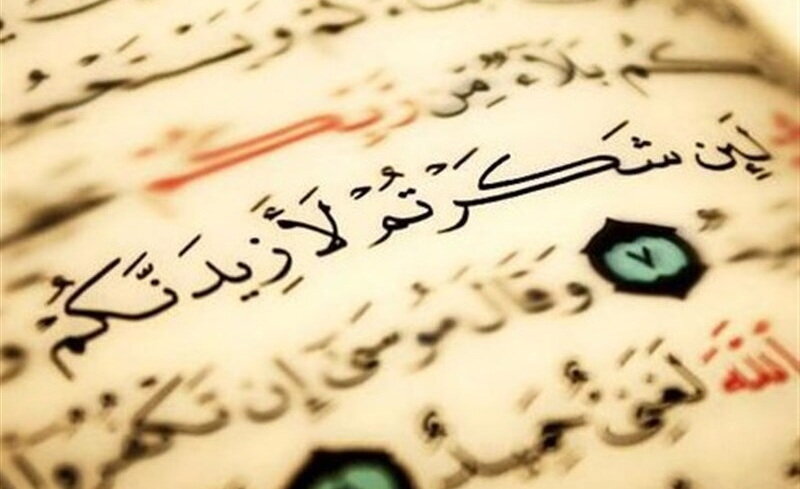 كُمْ بَلَاءٌ مِّن رَّبِّكُمْ
لَئِن شَكَرْتُمْ لَأَزِيدَنَّكُمْ
٧ وَقَالَ مُوسَىٰ إِن تَكْفُرُوا
اللَّهَ لَغَنِيٌّ حَمِيدٌ